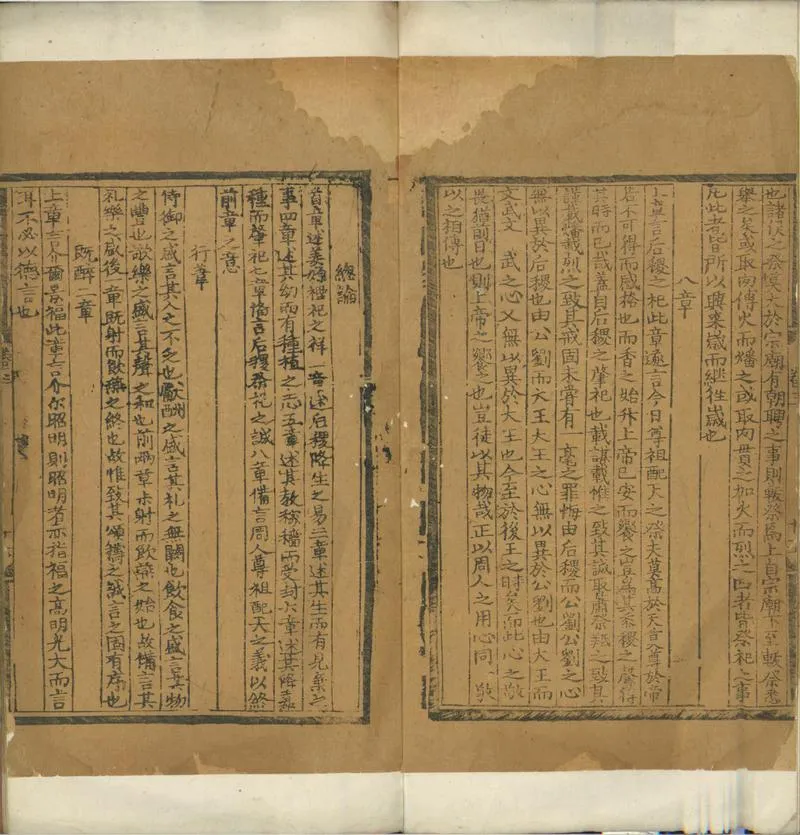 也諸侯之祭莫大於宗廟有朝聘之事則軷祭焉上自宗廟下至軷祭悉
舉之矣或取內傅火而燔之或取內貫之加火而烈之四者皆祭祀之事
凡此者皆所以興來歲而繼往歲也
八章
上章言后稷之祀此章遂言今日尊祖配天之祭夫莫高於天莫尊於帝
若不可得而感格也而香之始升上帝已安而饗之豈為其黍稷之馨得
其時而已哉蓋自后稷之肇祀也載謀載惟之致其誠取蕭祭脂之致其
謹載燔載烈之致其戒固未嘗有一毫之罪悔由后稷而公劉公劉之心
無以異於后稷也由公劉而大王大王之心無以異於公劉也由大王而
文武文武之心又無以異於大王也今至於後王之時矣而此心之敬
畏猶前日也則上帝之饗之也豈徒以其物哉正以周人之用心同一敬
以之相傳也
總論
首章述姜嫄禋祀之祥二章述后稷降生之易三章述其生而有見棄之
事四章述其幼而有種植之志五章述其教稼穡而受封六章述其降嘉
種而肇祀七章備言后稷祭祀之誠八章備言周人尊祖配天之義以終
前章之意
行葦
侍御之盛言其人之不乏也獻酬之盛言其礼之無闕也飲食之盛言其物
之豐也歌樂之盛言其聲之和也前兩章未射而飲燕之始也故備言其
礼樂之盛後二章既射而飲燕之終也故惟致其頌禱之誠言之固有序也
既醉二章
上章言介爾景福此章言介尔昭明則昭明者亦指福之高明光大而言
耳不必以德言也
卷三